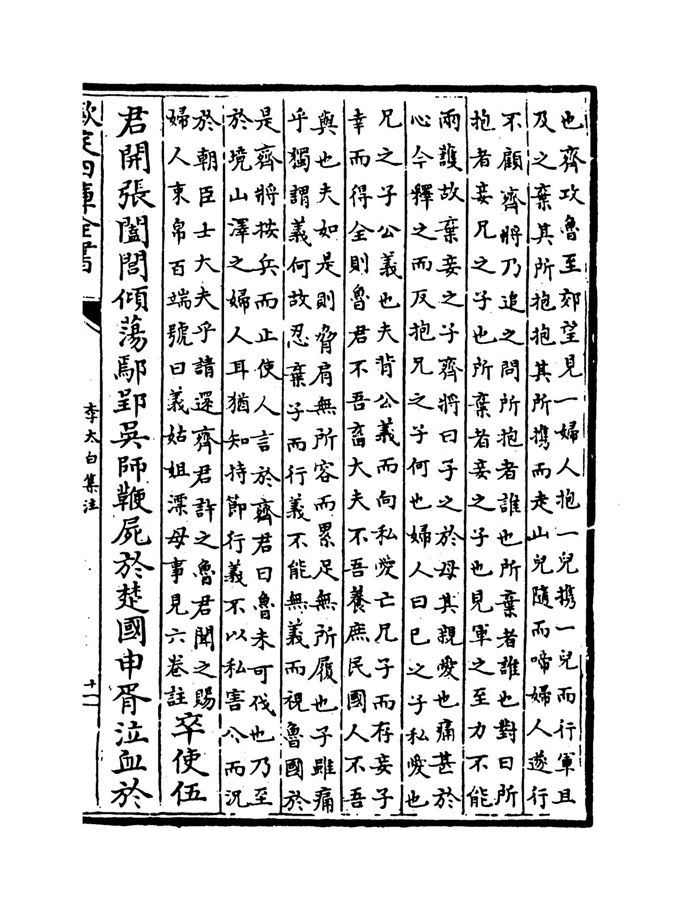 也齊攻魯至郊望見一婦人抱一兒携一兒而行軍且
及之棄其所抱抱其所携而走山兒隨而啼婦人遂行
不顧齊將乃追之問所抱者誰也所棄者誰也對曰所
抱者妾兄之子也所棄者妾之子也見軍之至力不能
兩護故棄妾之子齊將曰子之於母其親愛也痛甚於
心今釋之而反抱兄之子何也婦人曰已之子私愛也
兄之子公義也夫背公義而向私愛亡兄子而存妾子
幸而得全則魯君不吾畜大夫不吾養庶民國人不吾
與也夫如是則脅肩無所容而累足無所履也子雖痛
乎獨謂義何故忍棄子而行義不能無義而視魯國於
是齊將按兵而止使人言於齊君曰魯未可伐也乃至
於境山澤之婦人耳猶知持節行義不以私害公而況
於朝臣士大夫乎請還齊君許之魯君聞之賜
婦人束帛百端號曰義姑姐漂母事見六卷註
卒使伍
君開張闔閭傾蕩鄢郢吳師鞭屍於楚國申胥泣血於
欽定四庫全書
李太白集注
十一